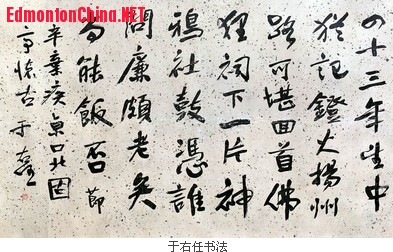 EdmontonChina.NET
四十三年望中
猶記鐙火揚州
路可堪回首佛
狸祠下一片神
鴉社鼓憑誰
問廉頗老矣
尚能飯否 節
辛棄疾京口北固
亭懷古 于
于右任书法